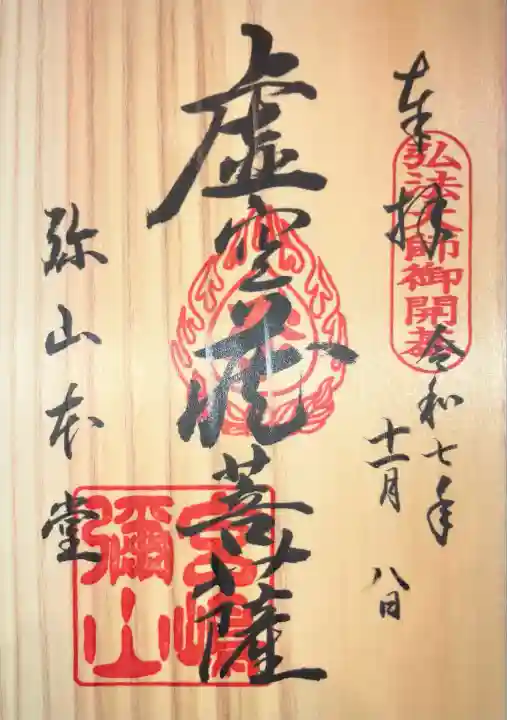 奉拝
弘法大師御開基
令和七年
十一月 八日
虚空蔵菩薩
弥山本堂
宮嶋
彌山